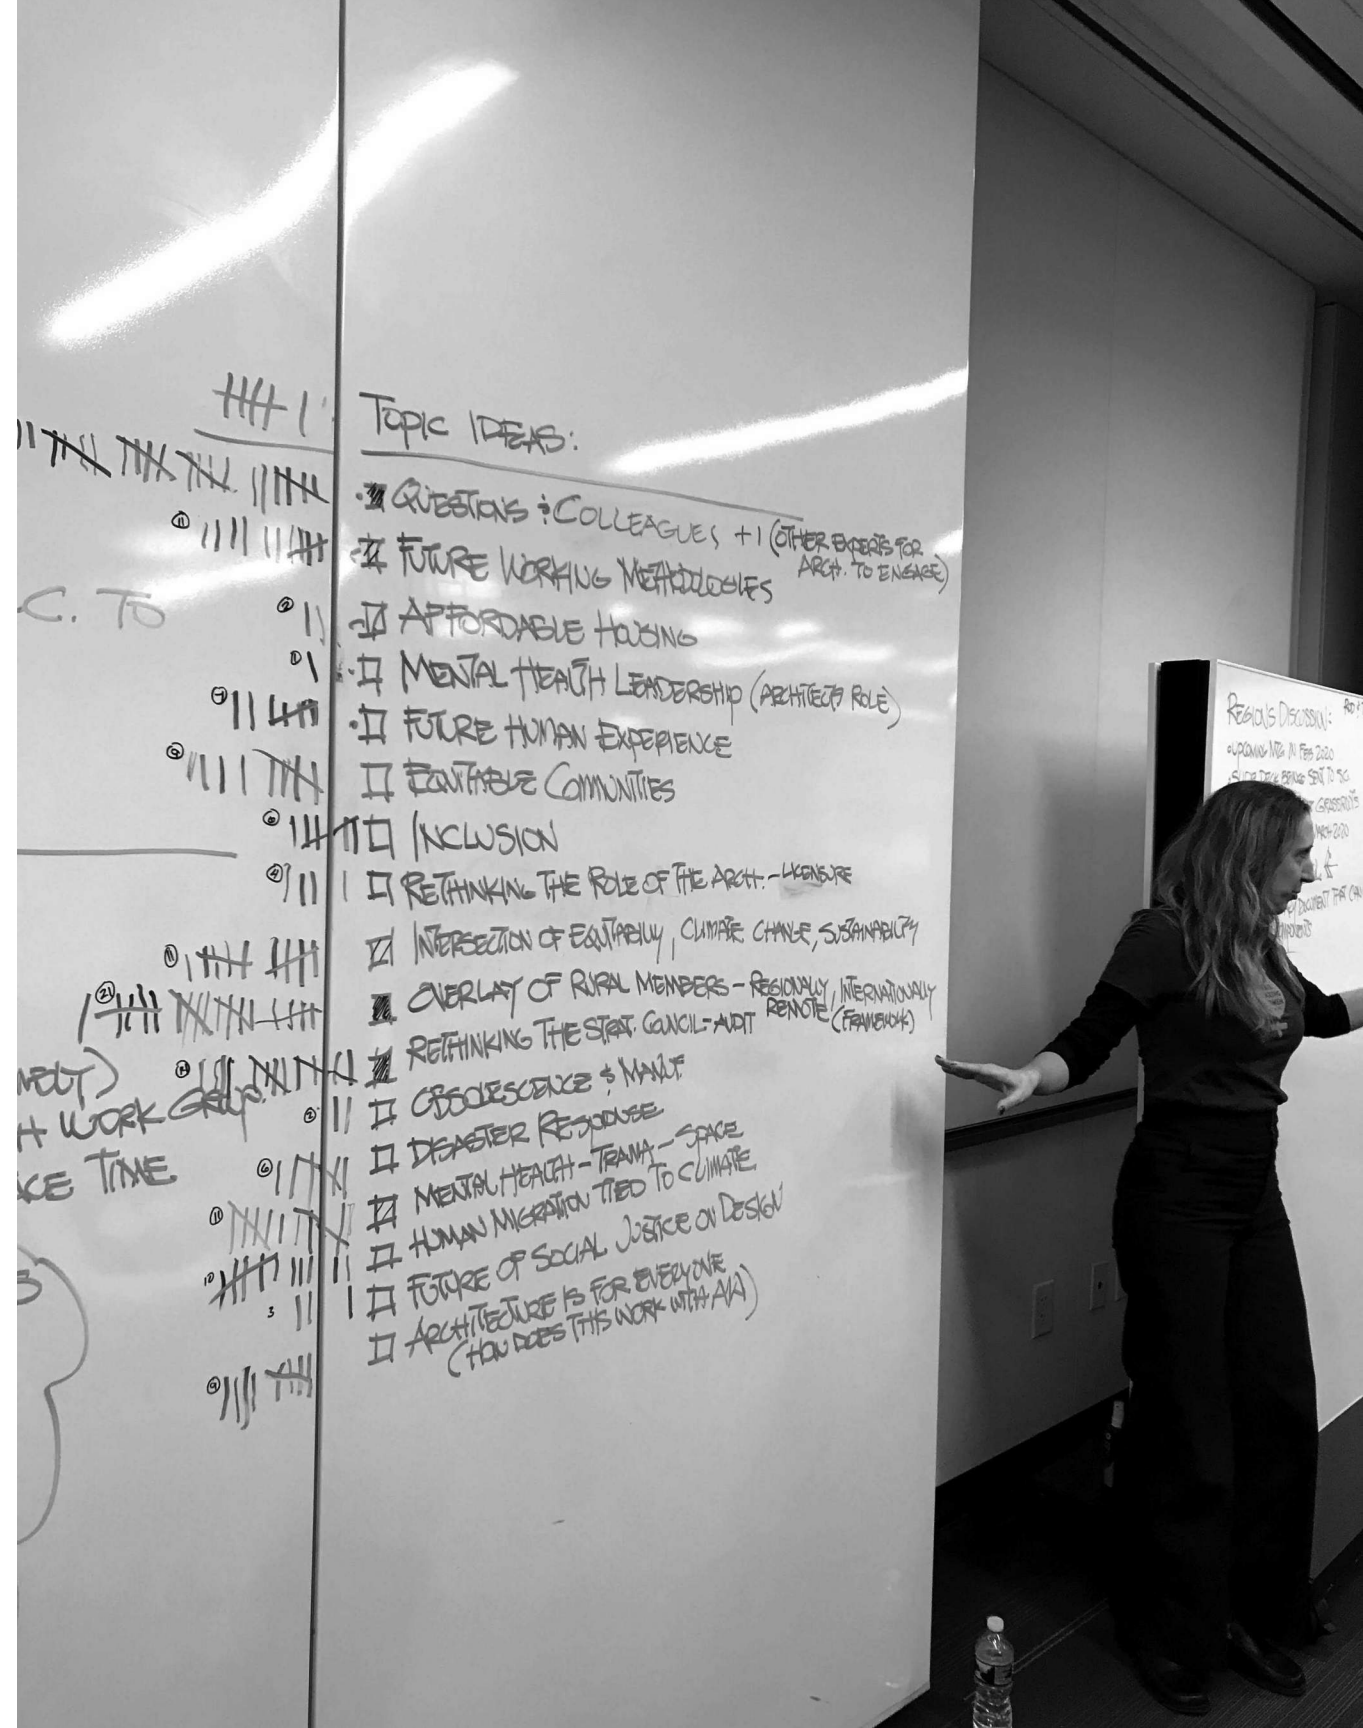 C. TO
WORK GROUP
TIME
TOPIC IDEAS:
QUESTIONS & COLLEAGUES +1 (OTHER EXPERTS FOR
ARCH. TO ENGAGE)
⑪ FUTURE WORKING METHODOLOGIES
② AFFORDABLE HOUSING
① MENTAL HEALTH LEADERSHIP (ARCHITECTS ROLE)
⑦ FUTURE HUMAN EXPERIENCE
⑨ EQUITABLE COMMUNITIES
⑥ INCLUSION
④ RETHINKING THE ROLE OF THE ARCH. - LICENSURE
⑪ INTERSECTION OF EQUITABILIY, CLIMATE CHANGE, SUSTAINABILITY
㉑ OVERLAY OF RURAL MEMBERS - REGIONALLY, INTERNATIONALLY
REMOTE (FRAMEWORK)
RETHINKING THE STRAT. COUNCIL - AUDIT
② OBSOLESCENCE & MANUF.
⑥ DISASTER RESPONSE
⑪ MENTAL HEALTH - TRAMA - SPACE
10 HUMAN MIGRATION TIED TO CLIMATE
3 FUTURE OF SOCIAL JUSTICE ON DESIGN
⑨ ARCHITECTURE IS FOR EVERYONE
(HOW DOES THIS WORK WITH AIA)
REGION'S DISCUSSION:
• UPCOMING MTG IN FEB 2020
• SLIDE DECK BEING SENT TO SC
GRASSROOTS
MARCH 2020
DOCUMENT THAT CAN